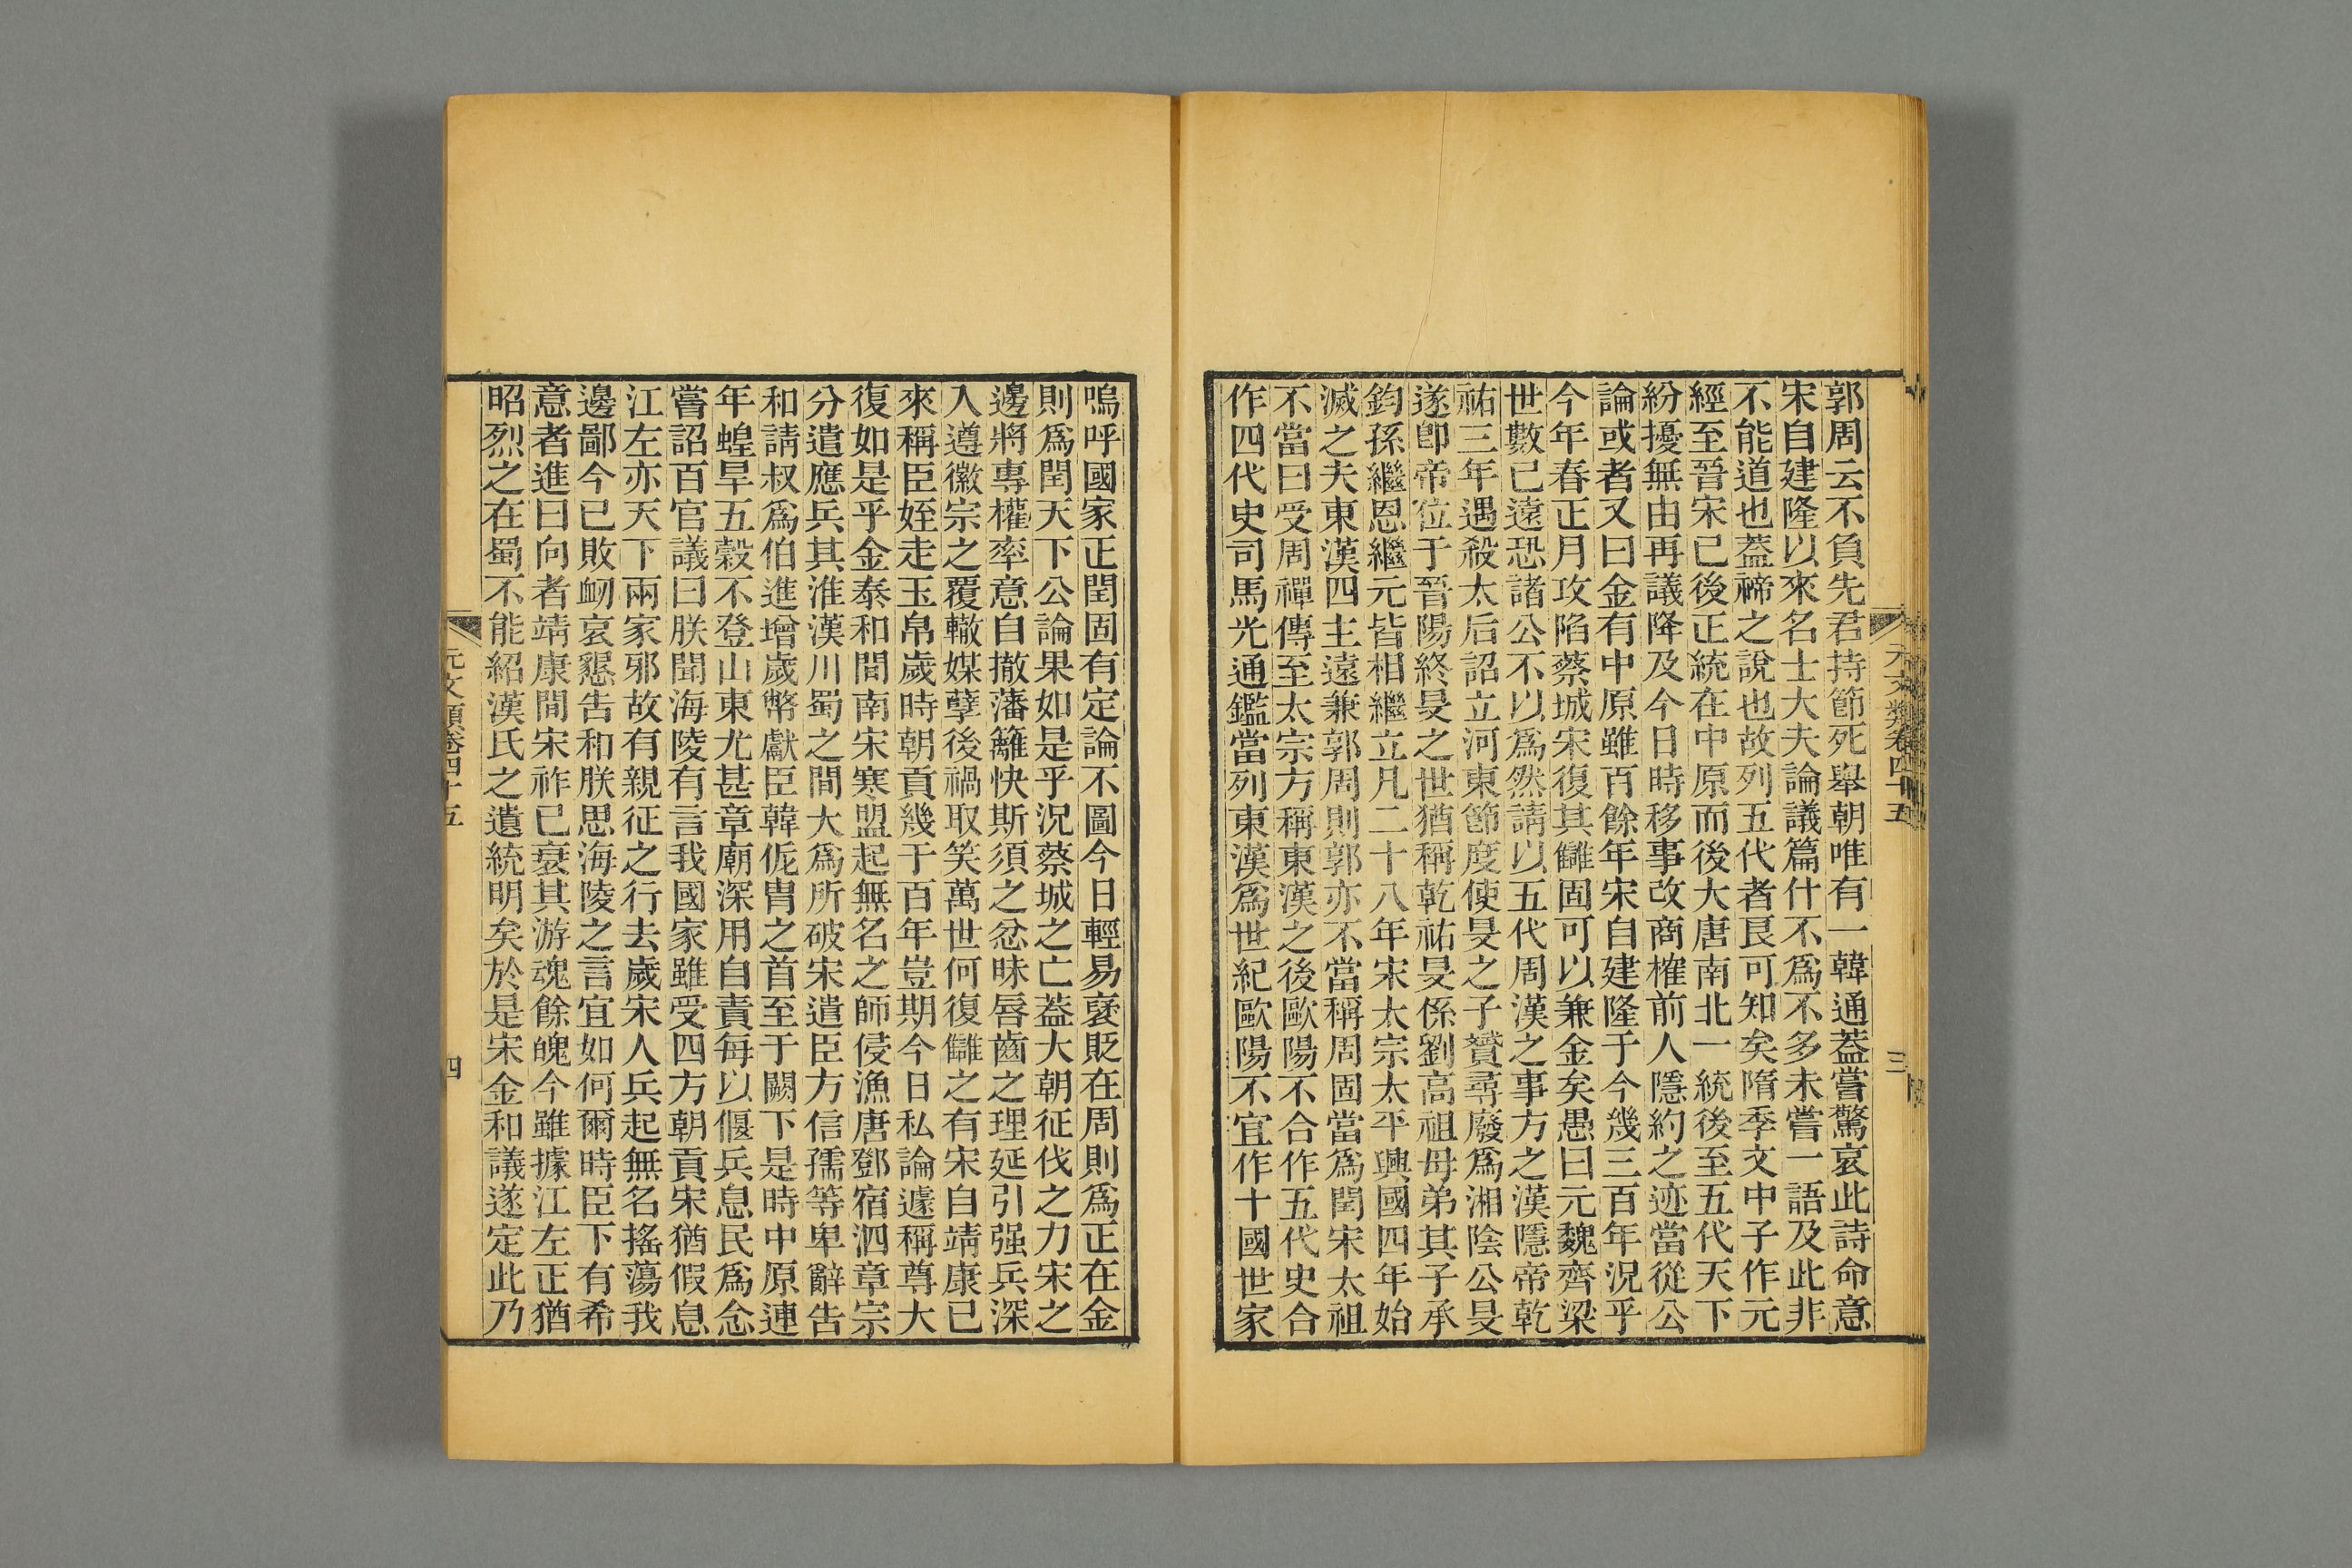 郭周云不負先君持節死舉朝唯有一韓通蓋嘗驚哀此詩命意
宋自建隆以來名士大夫論議篇什不爲不多未嘗一語及此非
不能道也蓋禘之說也故列五代者艮可知矣隋季文中子作元
經至晉宋已後正統在中原而後大唐南北一統後至五代天下
紛擾無由再議降及今日時移事改商榷前人隱約之迹當從公
論或者又曰金有中原雖百餘年宋自建隆于今幾三百年況乎
今年春正月攻陷蔡城宋復其讎固可以兼金矣愚曰元魏齊梁
世數已遠恐諸公不以爲然請以五代周漢之事方之漢隱帝乾
祐三年遇殺太后詔立河東節度使旻之子贇尋廢爲湘陰公旻
遂卽帝位于晉陽終旻之世猶稱乾祐旻係劉高祖母弟其子承
鈞孫繼恩繼元皆相繼立凡二十八年宋太宗太平興國四年始
滅之夫東漢四主遠兼郭周則郭亦不當稱周固當爲閏宋太祖
不當曰受周禪傳至太宗方稱東漢之後歐陽不合作五代史合
作四代史司馬光通鑑當列東漢爲世紀歐陽不宜作十國世家
元文類卷四十五
三
嗚呼國家正閏固有定論不圖今日輕易襃貶在周則爲正在金
則爲閏天下公論果如是乎況蔡城之亡蓋大朝征伐之力宋之
邊將專權率意自撤藩籬快斯須之忿昧唇齒之理延引强兵深
入遵徽宗之覆轍媒孽後禍取笑萬世何復讎之有宋自靖康已
來稱臣姪走玉帛歲時朝貢幾于百年豈期今日私論遽稱尊大
復如是乎金泰和間南宋寒盟起無名之師侵漁唐鄧宿泗章宗
分遣應兵其淮漢川蜀之間大爲所破宋遣臣方信孺等卑辭告
和請叔爲伯進增歲幣獻臣韓侂胄之首至于闕下是時中原連
年蝗旱五穀不登山東尤甚章廟深用自責每以偃兵息民爲念
嘗詔百官議曰朕聞海陵有言我國家雖受四方朝貢宋猶假息
江左亦天下兩家邪故有親征之行去歲宋人兵起無名搖蕩我
邊鄙今已敗衂哀懇告和朕思海陵之言宜如何爾時臣下有希
意者進曰向者靖康間宋祚已衰其游魂餘魄今雖據江左正猶
昭烈之在蜀不能紹漢氏之遺統明矣於是宋金和議遂定此乃
元文類卷四十五
四